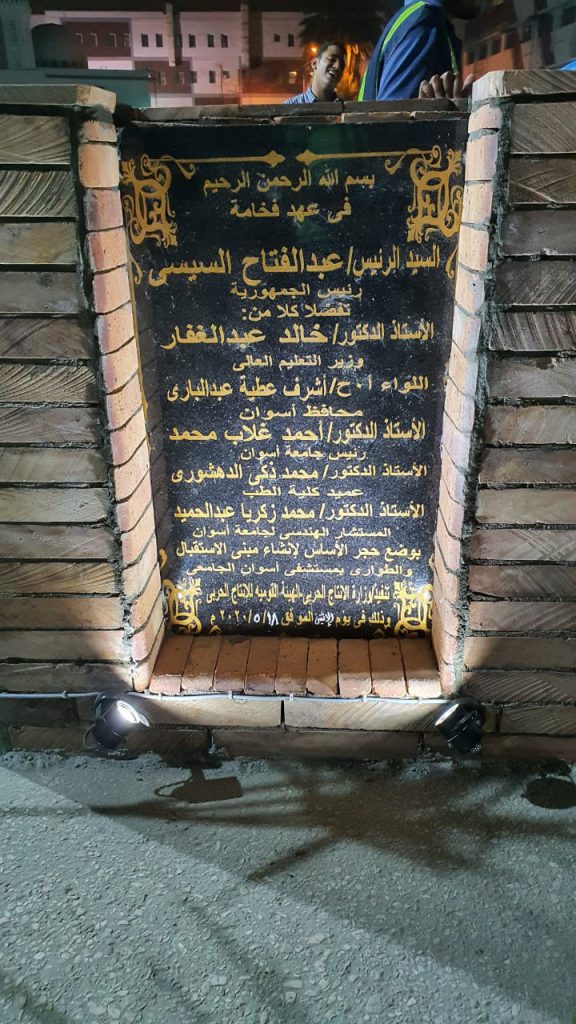 بسم الله الرحمن الرحيم
فى عهد فخامة
السيد الرئيس/عبدالفتاح السيسى
رئيس الجمهورية
تفضلا كلا من:
الأستاذ الدكتور/خالد عبدالغفار
وزير التعليم العالى
اللواء أ.ح/أشرف عطية عبدالبارى
محافظ أسوان
الأستاذ الدكتور/أحمد غلاب محمد
رئيس جامعة أسوان
الأستاذ الدكتور/محمد زكى الدهشورى
عميد كلية الطب
الأستاذ الدكتور/محمد زكريا عبدالحميد
المستشار الهندسى لجامعة أسوان
بوضع حجر الأساس لإنشاء مبنى الاستقبال
والطوارى بمستشفى أسوان الجامعى
تنفيذ/وزارة الإنتاج الحربى-الهيئة القومية للإنتاج الحربى
وذلك فى يوم الإثنين الموفق ٢٠٢٠/٥/١٨ م